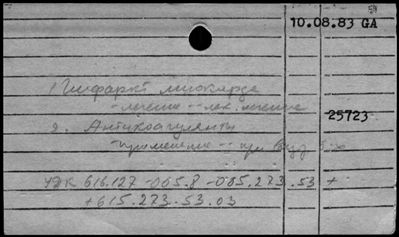 59
10.08.83 GA
1 Инфаркт миокарда
- лечение -- лек. лечение
25723
2. Антикоагулянты
- применение -- при
УДК 616.127-005.8-085.273.53 +
+615.273.53.03